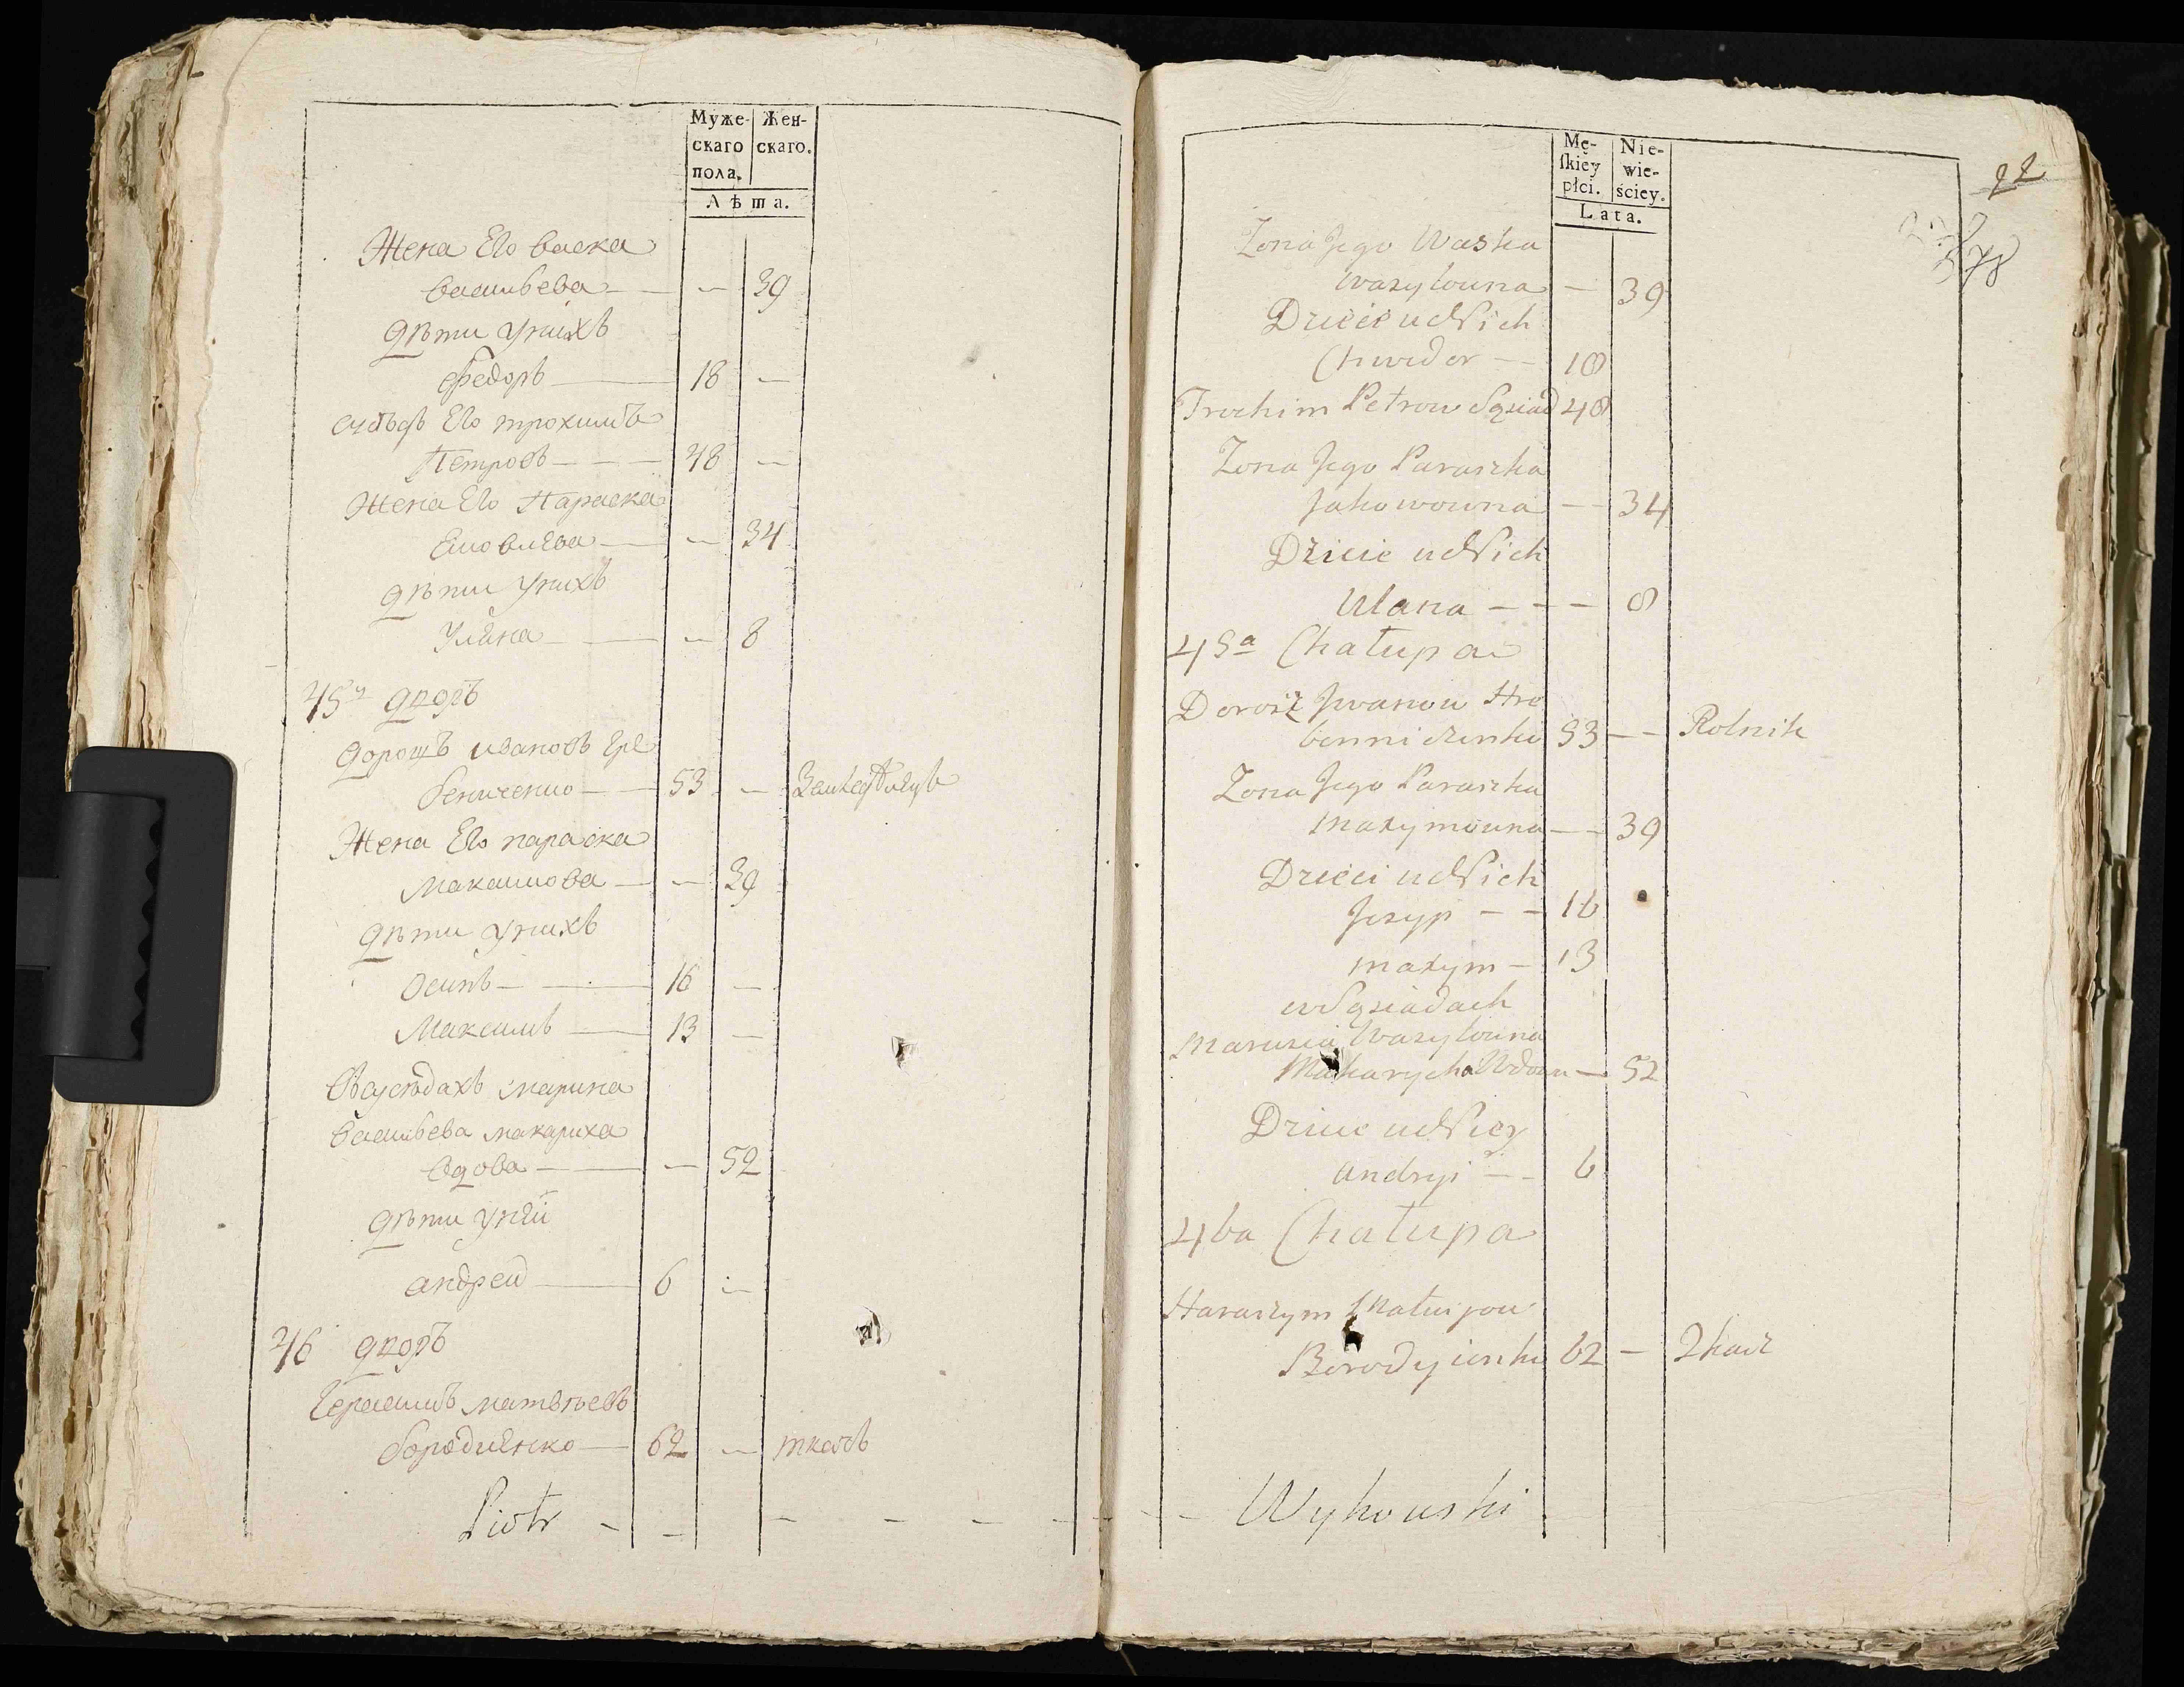 Муже-
скаго
пола.
Жен-
скаго.
Лѣта.
Жена Его васка
васильева — — 39
дѣти Унихъ
Федоръ — 18 —
сусѣдъ Его трохимъ
Петровъ — — — 48 —
Жена Его Параска
— — 34
дѣти Унихъ
Уляна — — 8
45й дворъ
дорошъ ивановъ гре
бениченко — — 53 —
Жена Его параска
максимова — — 39
дѣти Унихъ
Осипъ — — 16 —
Максимъ — 13 —
Всусѣдахъ марина
васильева макариха
вдова — — — 52
дѣти Уней
андрей — 6 —
46 дворъ
Герасимъ матвѣевъ
бородиенко — 62 — ткачъ
Piotr - - - - - - -
Mę-
skiey
płci.
Nie-
wie-
ściey.
Lata.
22
78
Zona Jego Waska
Wasylowna — 39
Dzieci u Nich
Chwedor — — 18
Trochim Petrow Sąsiad 48
Zona Jego Paraszka
Jakowowna — — 34
Dzieci u Nich
Ulana — — — 8
45a Chałupa
Dorosz Jwanow Hre
benniczenko 53 — — Rolnik
Zona Jego Paraszka
Maxymowna — — 39
Dzieci u Nich
Jozyp — — 16
Maxym — 13
w Sąsiadach
Marusia Wasylowna
Makarycha Wdowa — 52
Dzieci u Niey
Andryi — — 6
46a Chałupa
Harasym Matwijow
Borodyienko 62 — Tkacz
- - Wykowski